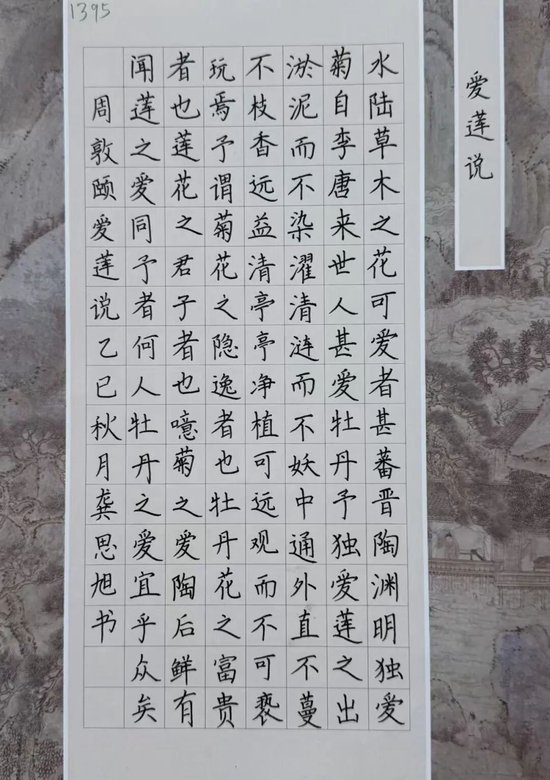 爱莲说
水陆草木之花可爱者甚蕃晋陶渊明独爱
菊自李唐来世人甚爱牡丹予独爱莲之出
淤泥而不染濯清涟而不妖中通外直不蔓
不枝香远益清亭亭净植可远观而不可亵
玩焉予谓菊花之隐逸者也牡丹花之富贵
者也莲花之君子者也噫菊之爱陶后鲜有
闻莲之爱同予者何人牡丹之爱宜乎众矣
周敦颐爱莲说乙巳秋月龚思旭书
1395